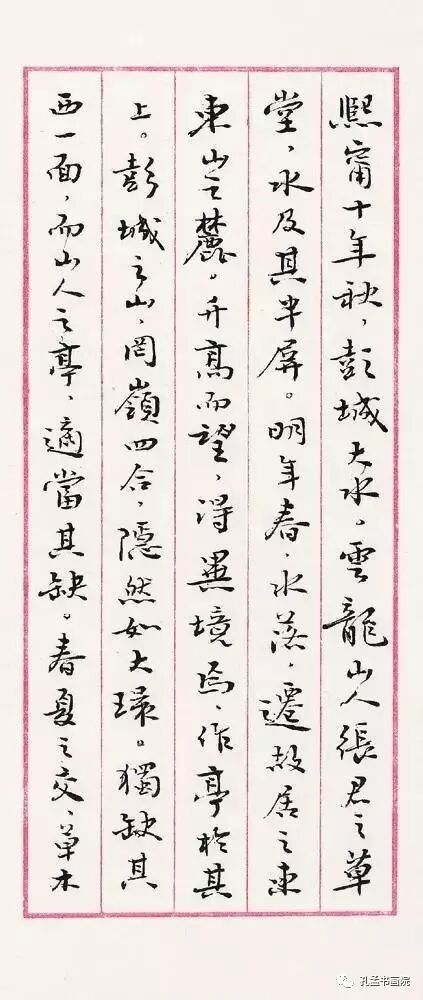 熙甯十年秋，彭城大水。雲龍山人張君之草
堂，水及其半扉。明年春，水落，遷故居之東
東山之麓。升高而望，得異境焉，作亭於其
上。彭城之山，岡嶺四合，隱然如大環。獨缺其
西一面，而山人之亭，適當其缺。春夏之交，草木
孔孟书画院